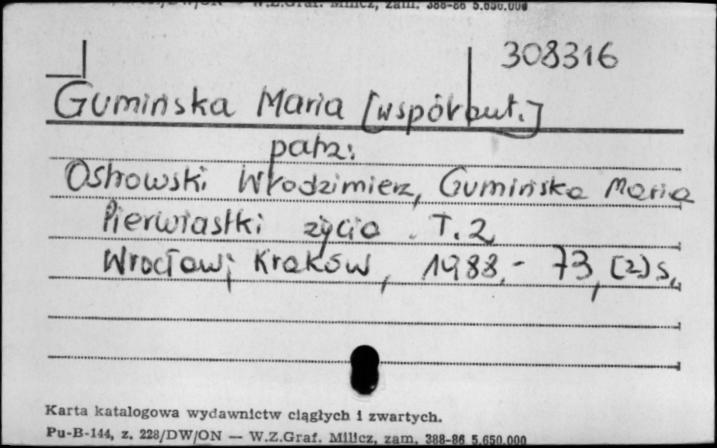 W.Z.Graf. Milicz, zam. 388-86 5.650.000
308316
Gumińska Maria [współaut.]
patrz:
Ostrowski Włodzimierz, Gumińska Maria
Pierwiastki życia. T.2
Wrocław; Kraków, 1988.- 73, [2] s.
Karta katalogowa wydawnictw ciągłych i zwartych.
Pu-B-144, z. 228/DW/ON — W.Z.Graf. Milicz, zam. 388-86 5.650.000